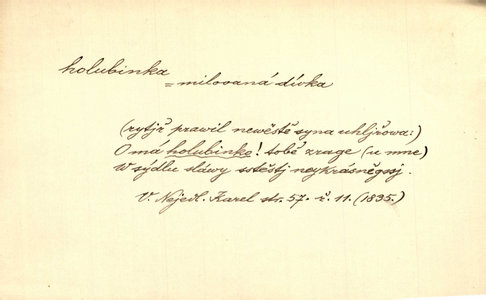 holubinka
= milovaná dívka
(rytjř prawil newěstě syna uhljřowa:)
O má holubinko! tobě zrage (u mne)
W sýdlu sláwy sstěstj neykrásněgssj.
V. Nejedl. Karel str. 57. ř. 11. (1835.)